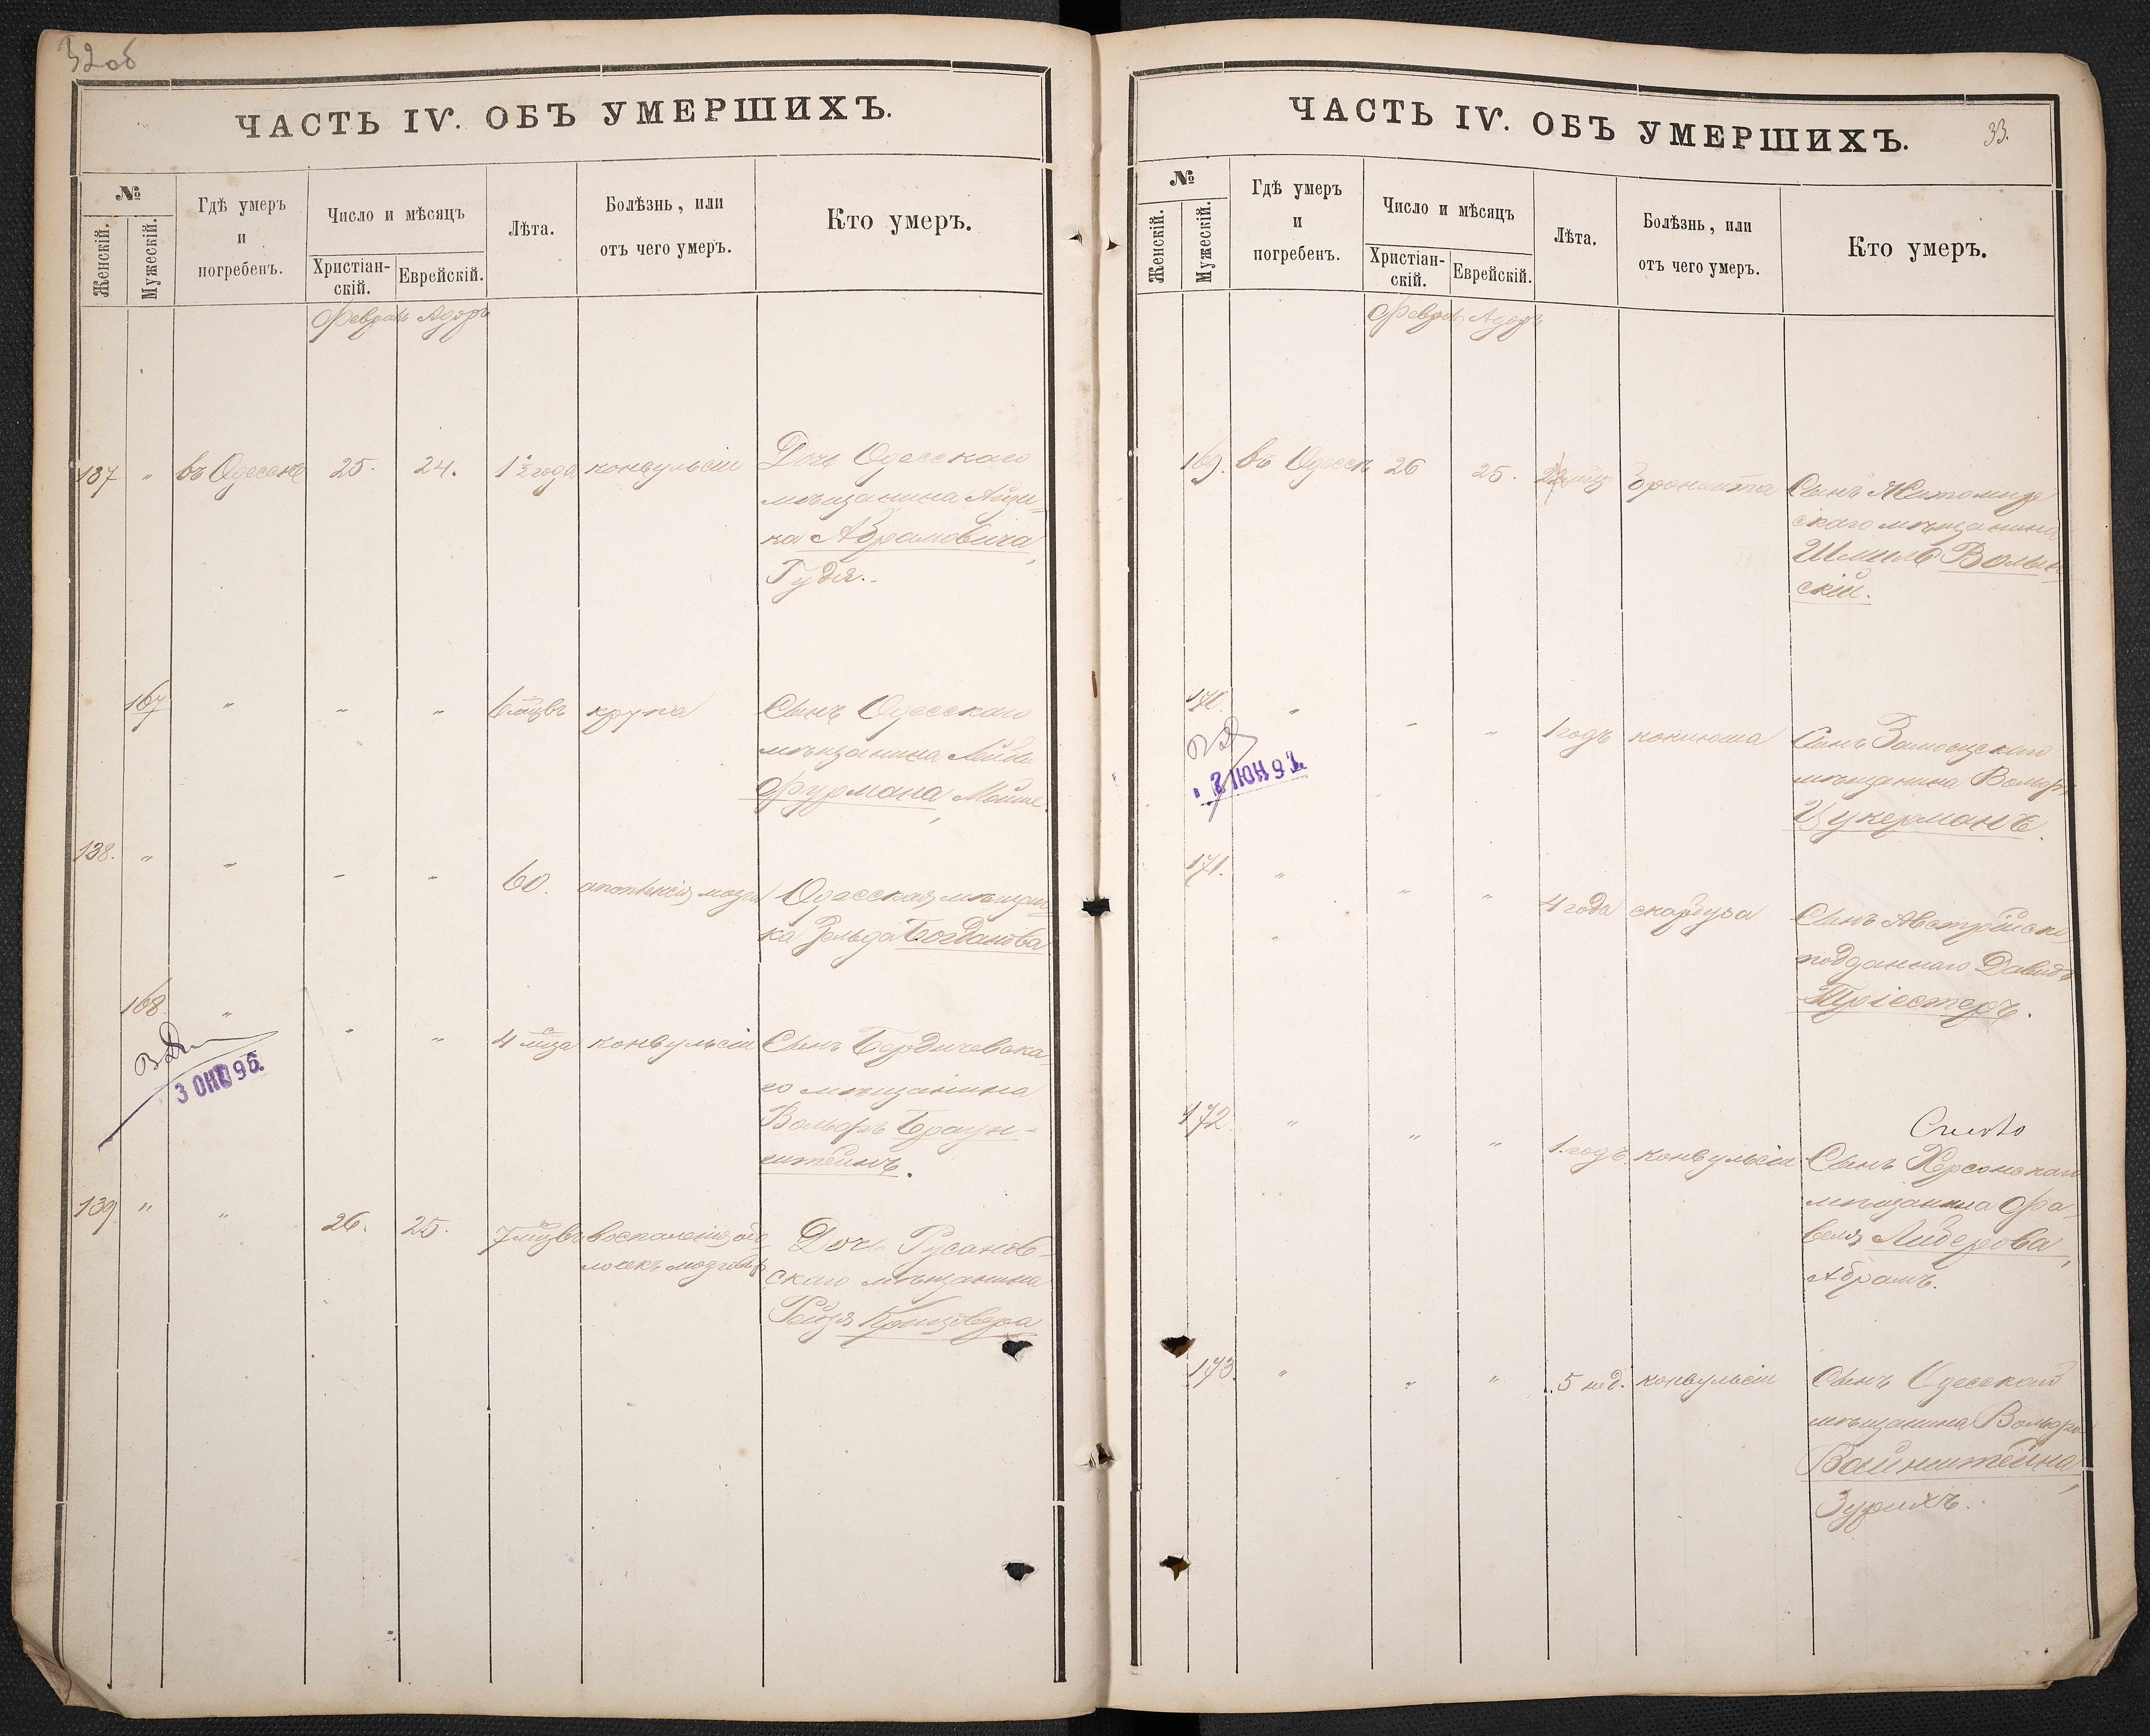 32об
ЧАСТЬ IV. ОБЪ УМЕРШИХЪ.
№
Женскій.
Мужескій.
Гдѣ умеръ
и
погребенъ.
Число и мѣсяцъ
Христіан-
скій.
Еврейскій.
Лѣта.
Болѣзнь, или
отъ чего умеръ.
Кто умеръ.
Февраль Адаръ
137 " въ Одессѣ 25. 24. 1½ года конвульсіи Дочь Одесскаго
мѣщанина Айзи-
ка Абрамовича,
Гудя.
167 " " " 6 мѣсцвъ крупа Сынъ Одесскаго
мѣщанина Лейба
Фурмана, Мойше.
138. " " " " 60. апоплексія мозга Одесская мѣщан-
ка Зельда Богданова
168 " " " 4 мѣсца конвульсіи Сынъ Бердичевска-
го мѣщанина
Вольфъ Браун-
штейнъ.
3 ОКТ 95
139. " " 26. 25. 7 мѣсцвъ воспаленія обо-
лочекъ мозговыхъ
Дочь Русанов-
скаго мѣщанина
Рейзя
ЧАСТЬ IV. ОБЪ УМЕРШИХЪ.
33.
№
Женскій.
Мужескій.
Гдѣ умеръ
и
погребенъ.
Число и мѣсяцъ
Христіан-
скій.
Еврейскій.
Лѣта.
Болѣзнь, или
отъ чего умеръ.
Кто умеръ.
Февраль Адаръ
169. въ Одессѣ 26 25. бронхита Сынъ Житомир-
скаго мѣщанина
Шмиль Волын-
скій.
170. " " " 1 годъ коклюша Сынъ Замосцскаго
мѣщанина Вольфъ
Цукерманъ.
ІЮН 92
171. " " " 4 года скарбута Сынъ Австрійск.
подданнаго Давидъ
Тріестеръ.
172. " " " 1. годъ конвульсіи Сынъ Херсонскаго
мѣщанина Фа-
веля Лидерова,
Абрамъ.
173. " " " 5 нед. конвульсіи Сынъ Одесскаго
мѣщанина Вольфа
Вайнштейна,
Зурихъ.